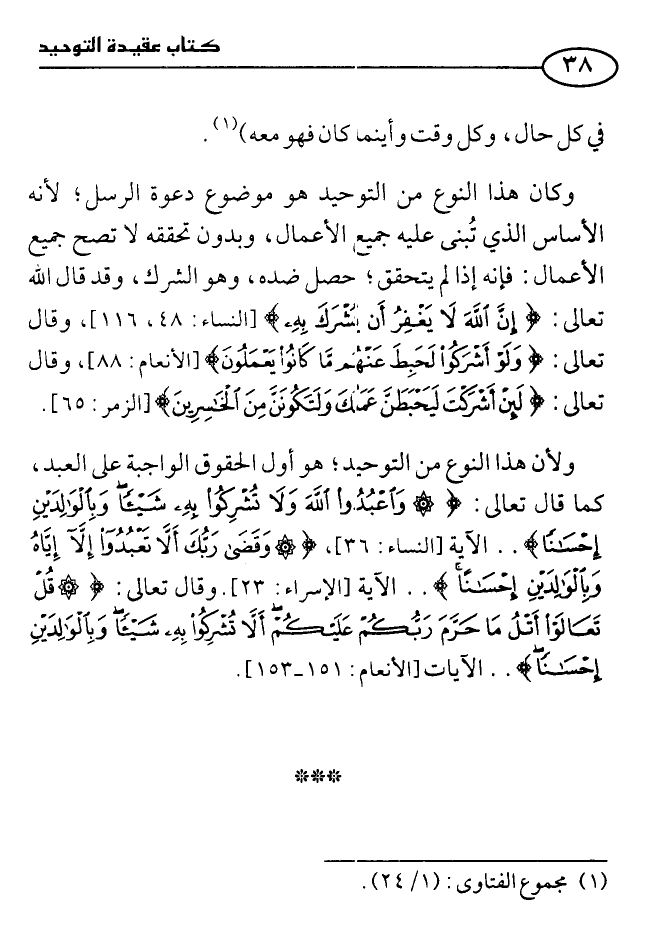 كتاب عقيدة التوحيد
٣٨
في كل حال، وكل وقت وأينما كان فهو معه)(١).
وكان هذا النوع من التوحيد هو موضوع دعوة الرسل؛ لأنه
الأساس الذي تُبنى عليه جميع الأعمال، وبدون تحققه لا تصح جميع
الأعمال: فإنه إذا لم يتحقق؛ حصل ضده، وهو الشرك، وقد قال الله
تعالى: ﴿ إِنَّ ٱللَّهَ لَا يَغْفِرُ أَن يُشْرَكَ بِهِۦ ﴾ [النساء: ٤٨، ١١٦]، وقال
تعالى: ﴿ وَلَوْ أَشْرَكُوا۟ لَحَبِطَ عَنْهُم مَّا كَانُوا۟ يَعْمَلُونَ ﴾ [الأنعام: ٨٨]، وقال
تعالى: ﴿ لَئِنْ أَشْرَكْتَ لَيَحْبَطَنَّ عَمَلُكَ وَلَتَكُونَنَّ مِنَ ٱلْخَاسِرِينَ ﴾ [الزمر: ٦٥].
ولأن هذا النوع من التوحيد؛ هو أول الحقوق الواجبة على العبد،
كما قال تعالى: ﴿ ۞ وَٱعْبُدُوا۟ ٱللَّهَ وَلَا تُشْرِكُوا۟ بِهِۦ شَيْـًٔا ۖ وَبِٱلْوَٰلِدَيْنِ
إِحْسَـٰنًا ﴾. . الآية [النساء: ٣٦]، ﴿ ۞ وَقَضَىٰ رَبُّكَ أَلَّا تَعْبُدُوٓا۟ إِلَّآ إِيَّاهُ
وَبِٱلْوَٰلِدَيْنِ إِحْسَـٰنًا ۚ ﴾. . الآية [الإسراء: ٢٣]. وقال تعالى: ﴿ ۞ قُلْ
تَعَالَوْا۟ أَتْلُ مَا حَرَّمَ رَبُّكُمْ عَلَيْكُمْ ۖ أَلَّا تُشْرِكُوا۟ بِهِۦ شَيْـًٔا ۖ وَبِٱلْوَٰلِدَيْنِ
إِحْسَـٰنًا ۖ ﴾. . الآيات [الأنعام: ١٥١ـ١٥٣].
***
(١) مجموع الفتاوى: (١/ ٢٤).